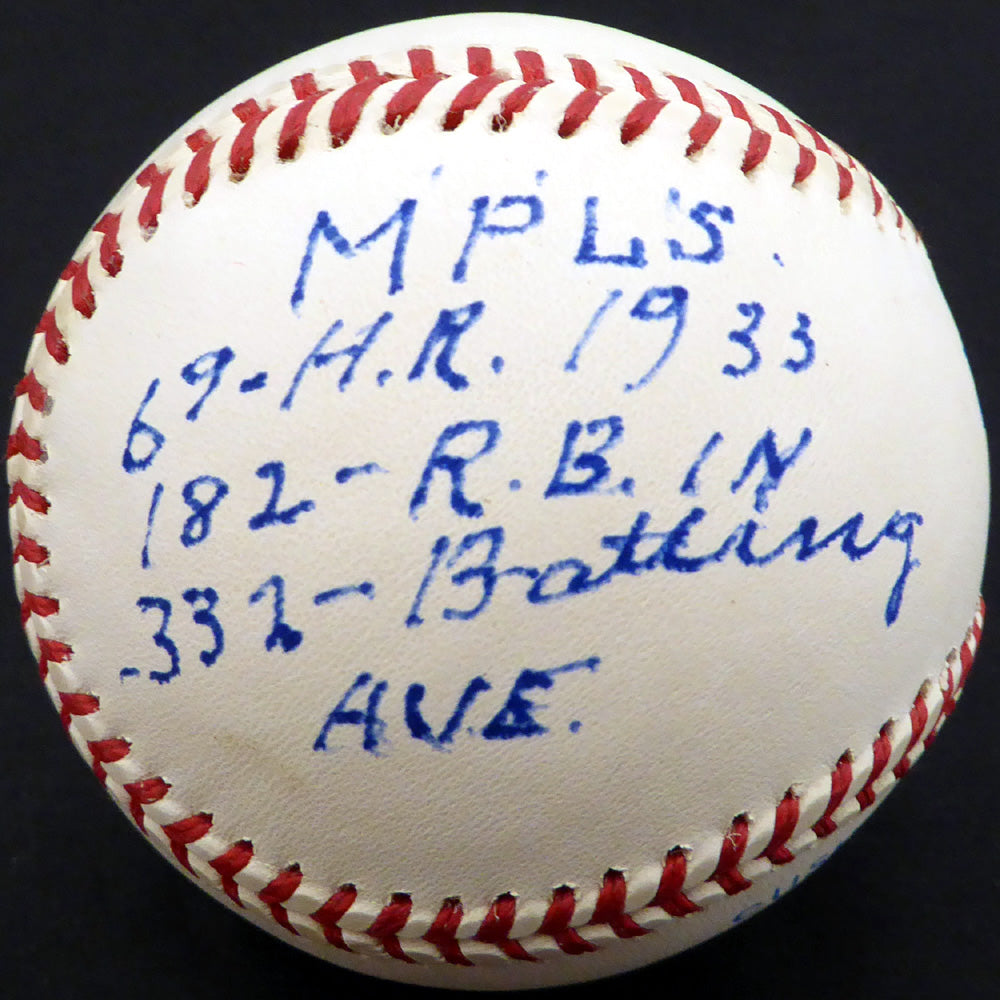 MPLS.
69-H.R. 1933
182-R.B.IN
.332-Batting
AVE.